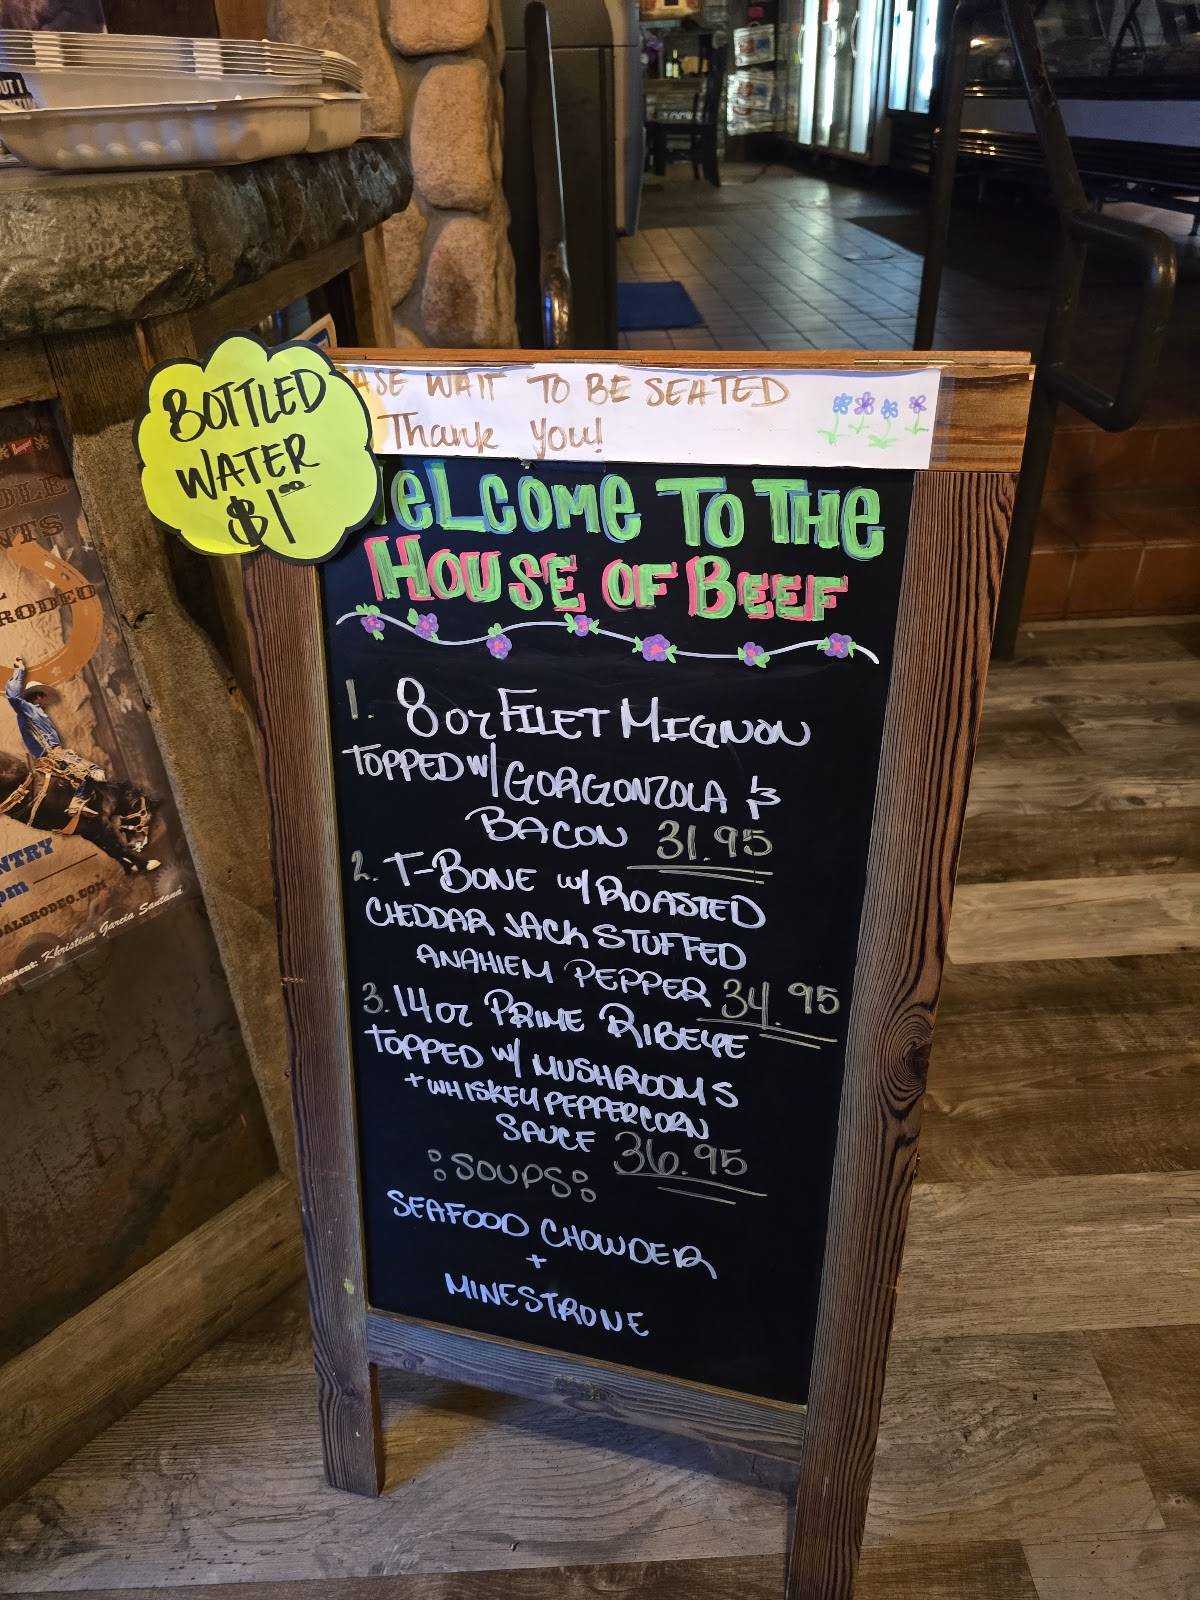 BOTTLED
WATER
$1.00
ASE WAIT TO BE SEATED
Thank You!
WELCOME TO THE
HOUSE OF BEEF
1. 8oz FILET MIGNON
TOPPED W/ GORGONZOLA &
BACON 31.95
2. T-BONE w/ ROASTED
CHEDDAR JACK STUFFED
ANAHIEM PEPPER 34.95
3. 14oz PRIME RIBEYE
TOPPED W/ MUSHROOMS
+ WHISKEY PEPPERCORN
SAUCE 36.95
SOUPS
SEAFOOD CHOWDER
+
MINESTRONE
RODEO
NTRY
pm
DALERODEO.COM
Khristina Garcia Santana